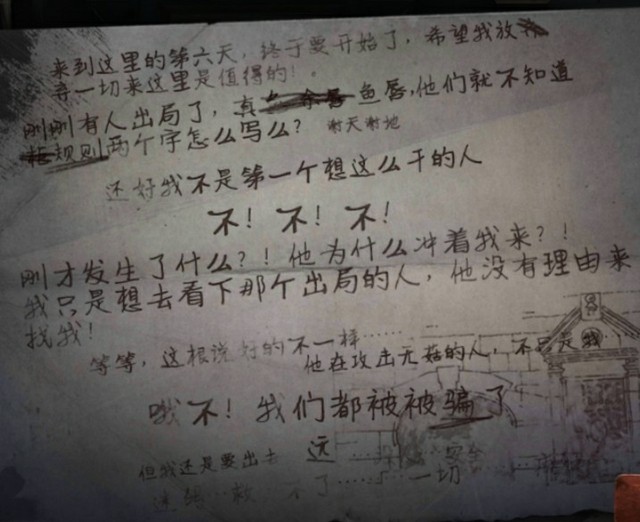 来到这里的第六天，终于要开始了，希望我放
弃一切来这里是值得的！。
刚刚有人出局了，真 鱼唇，他们就不知道
规则两个字怎么写么？ 谢天谢地
还好我不是第一个想这么干的人
不！不！不！
刚才发生了什么？！他为什么冲着我来？！
我只是想去看下那个出局的人，他没有理由来
找我！
等等，这根说好的不一样……
他在攻击无菇的人，不只是我
哦不！我们都被被骗了
但我还是要出去 远
一切